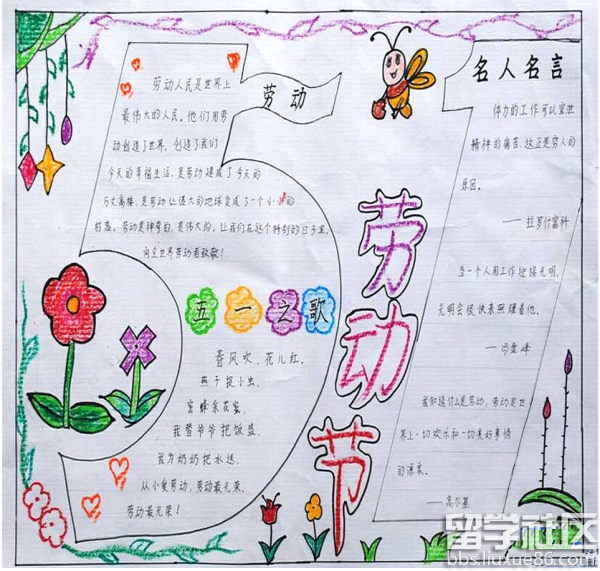 劳动人民是世界上
最伟大的人民。他们用劳
动创造了世界，创造了我们
今天的幸福生活，是劳动建成了今天的
万丈高楼，是劳动让偌大的地球变成了一个小小的
村落。劳动是神奇的，是伟大的，让我们在这个特别的日子里，
向全世界劳动者致敬！
劳动
五一之歌
春风吹，花儿红，
燕子捉小虫，
蜜蜂采花蜜，
我替爷爷把饭盛，
我为奶奶把水送，
从小爱劳动，劳动最光荣，
劳动最光荣！
劳动节
名人名言
体力的工作可以宣泄
精神的痛苦，这正是穷人的
乐园。
——拉罗什富科
当一个人用工作迎接光明，
光明会很快来照耀着他。
——冯雪峰
我知道什么是劳动，劳动是世
界上一切欢乐和一切美好事情
的源泉。
——高尔基
留学社区
bbs.liuxue86.com